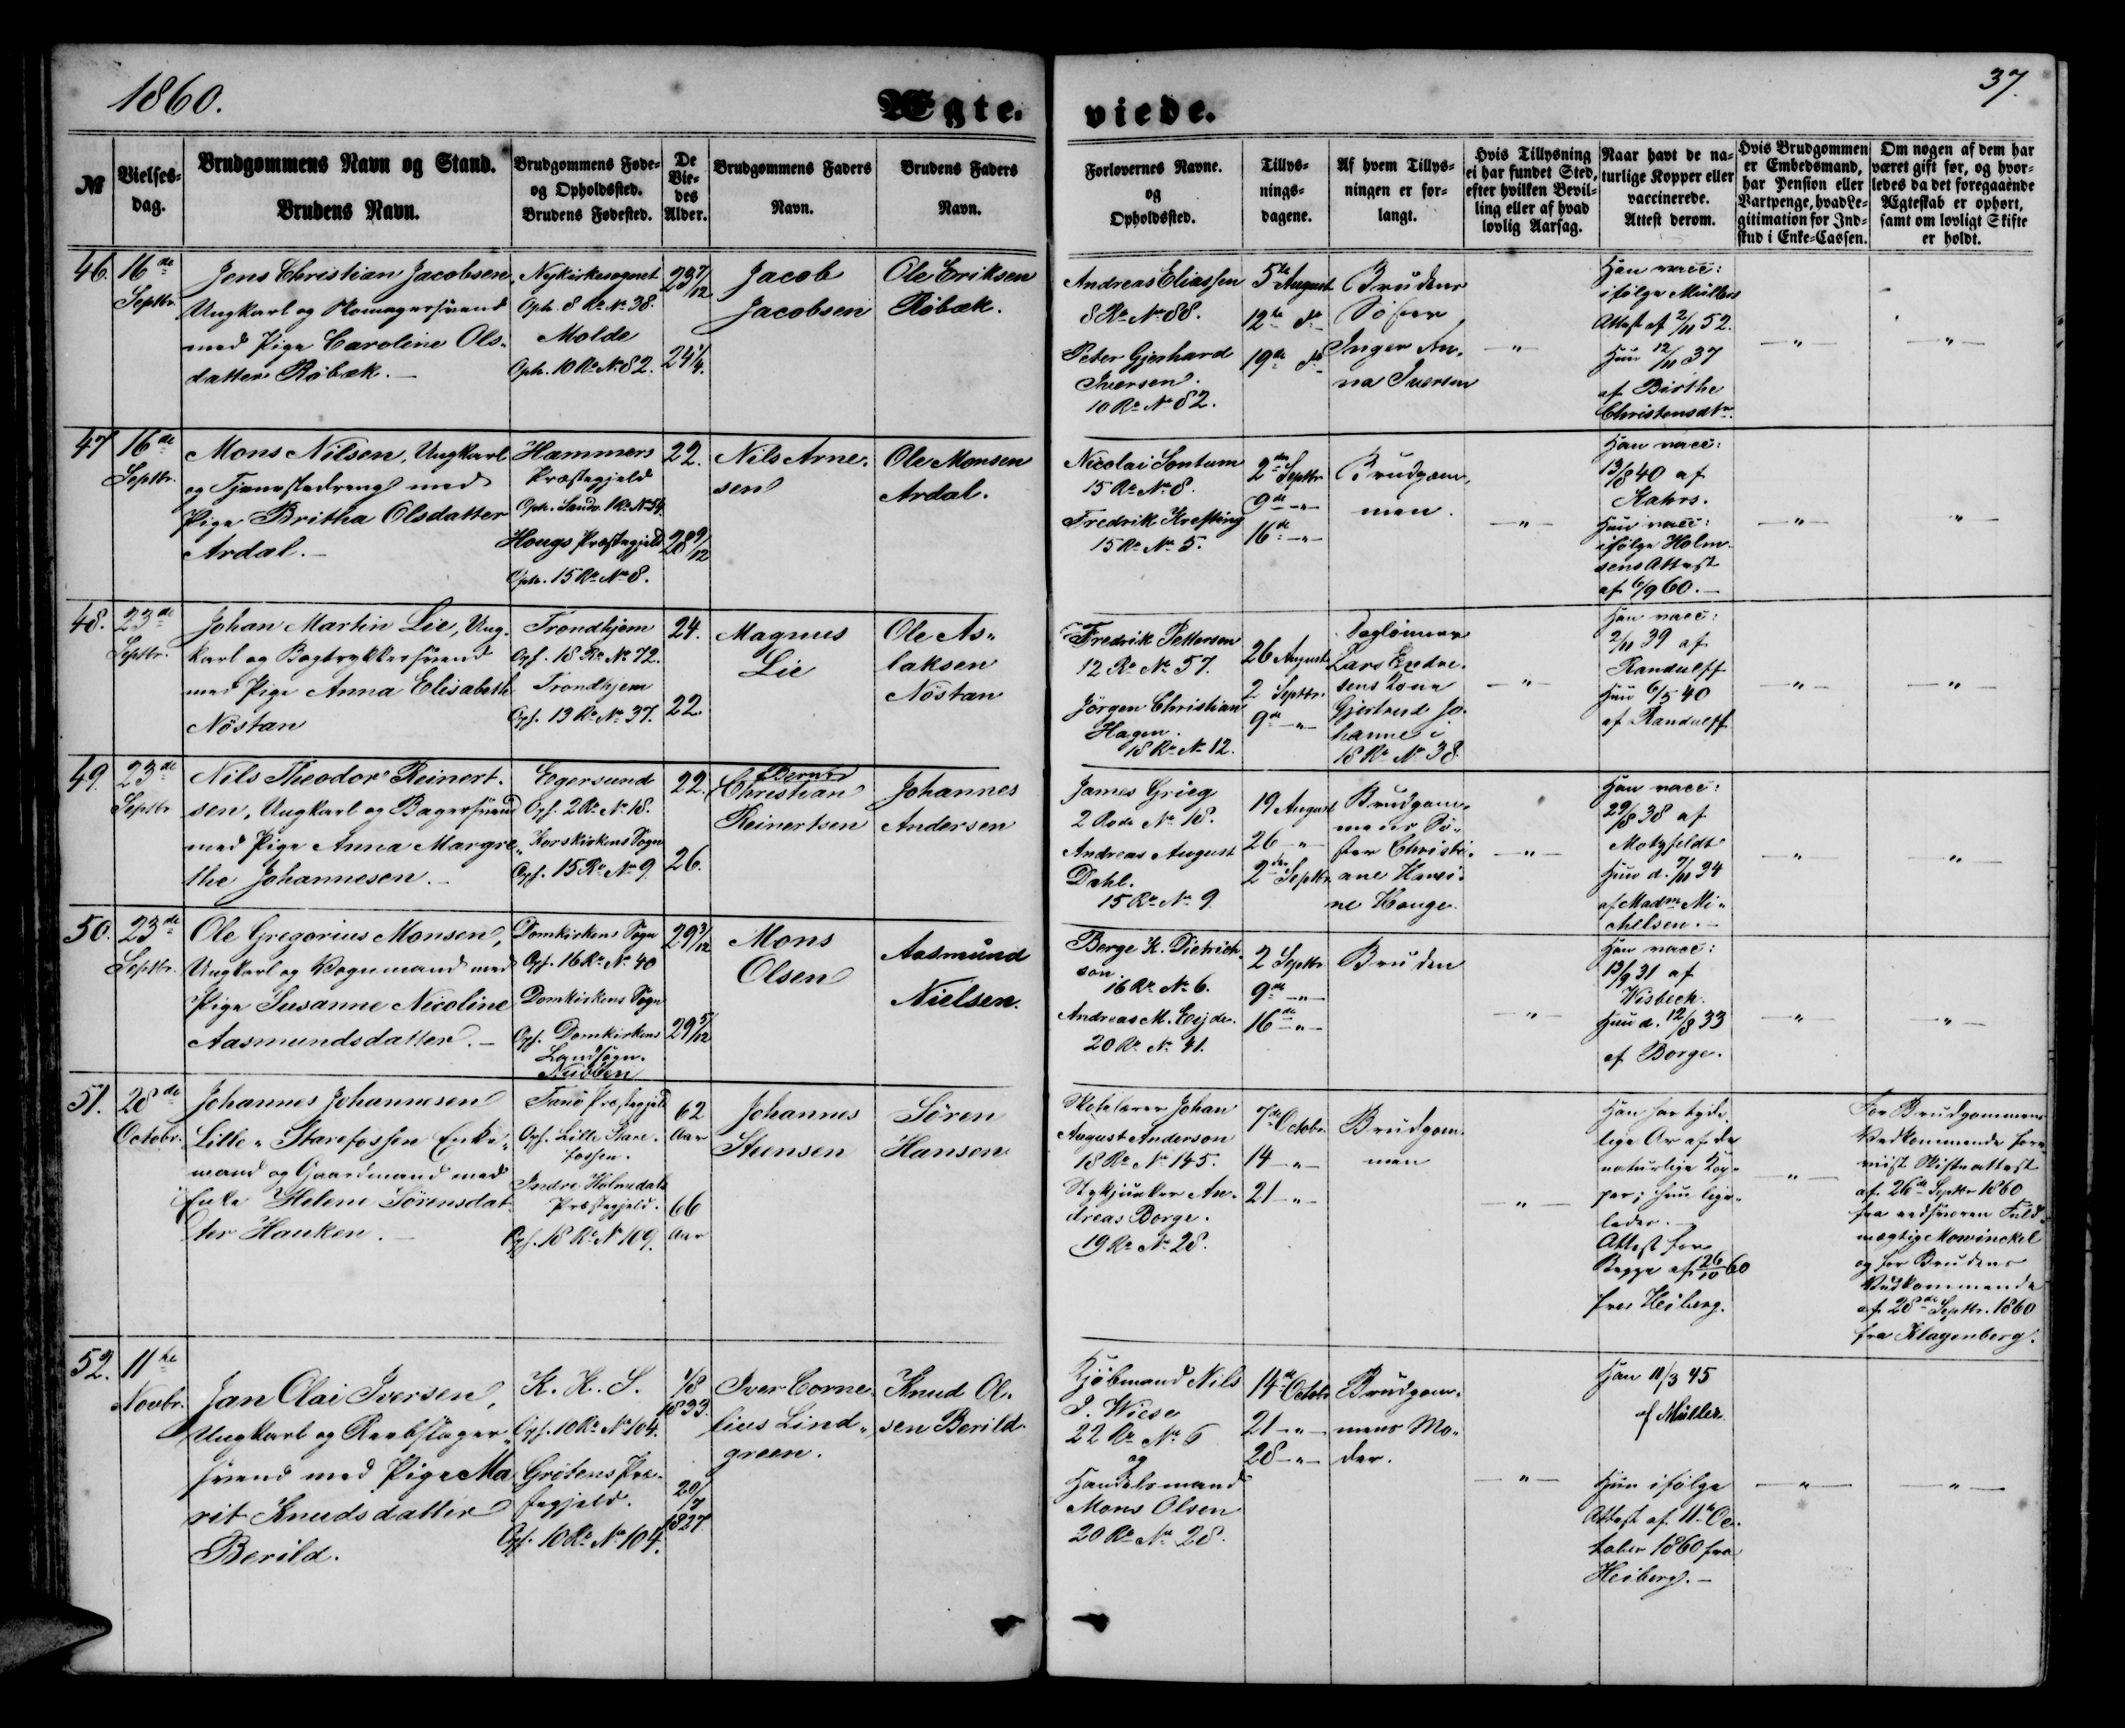 1860.
Ægte-
viede.
37.
№
Vielses-
dag.
Brudgommens Navn og Stand.
Brudens Navn.
Brudgommens Føde-
og Opholdssted.
Brudens Fødested.
De
Vie-
des
Alder.
Brudgommens Faders
Navn.
Brudens Faders
Navn.
Forlovernes Navne.
og
Opholdssted.
Tillys-
nings-
dagene.
Af hvem Tillys-
ningen er for-
langt.
Hvis Tillysning
ei har fundet Sted,
efter hvilken Bevil-
ling eller af hvad
lovlig Aarsag.
Naar havt de na-
turlige Kopper eller
vaccinerede.
Attest derom.
Hvis Brudgommen
er Embedsmand,
har Pension eller
Vartpenge, hvad Le-
gitimation for Ind-
skud i Enke-Cassen.
Om nogen af dem har
været gift før, og hvor-
ledes da det foregaaende
Ægteskab er ophørt,
samt om lovligt Skifte
er holdt.
46.
16de
Septbr.
Jens Christian Jacobsen,
Ungkarl og Skomagersvend
med Pige Caroline Ols-
datter Röbæk. —
Nykirkesognet
Oph. 8 Re No 38.
Molde
Oph. 10 Re No 82.
23 7/12
24 1/4.
Jacob
Jacobsen
Ole Eriksen
Röbæk.
Andreas Eliassen
8 Re No 88.
Peter Gjerhard
Iversen.
10 Re No 82.
5te August
12te do
19de do
Brudens
Söster
Inger An-
na Iversen
— " —
Han vacc:
ifölge Müllers
Attest af 2/11 52.
Hun 12/11 37
af Birthe
Christensdtr.
— " —
— " —
47
16de
Septbr.
Mons Nilsen, Ungkarl
og Tjenestedreng med
Pige Britha Olsdatter
Ardal. —
Hammers
Præstegjeld
Oph. Sandv. 1 Re No 54
Hougs Præstegjeld
Oph. 15 Re No 8.
22.
28 9/12
Nils Arne-
sen
Ole Monsen
Ardal.
Nicolai Sontum
15 Re No 8.
Fredrik Krefting
15 Re No 5.
2den Septbr
9de — " —
16de — " —
Brudgom-
men.
— " —
Han vacc:
13/8 40 af
Kahrs.
Hun vacc:
ifölge Holm-
sens Attest
af 6/9 60. —
— " —
" —
48.
23de
Septbr.
Johan Martin Lie, Ung-
karl og Bogtrykkersvend
med Pige Anna Elisabeth
Nöstan
Trondhjem
Opf. 18 Re No 72.
Trondhjem
Opf. 13 Re No 37.
24.
22.
Magnus
Lie
Ole As-
laksen
Nöstan
Fredrik Pettersen
12 Re No 57.
Jörgen Christian
Hagen.
18 Re No 12.
26 August
2 Septbr.
9de — " —
Daglönner
Lars Endre-
sens Kone
Gjertrud Jo-
hanne i
18 Re No 38.
— " —
Han vacc:
2/11 39 af
Randulff
Hun 6/5 40
af Randulff
— " —
— " —
49.
23de
Septbr
Nils Theodor Reinert-
sen, Ungkarl og Bagersvend
med Pige Anna Margre-
the Johannesen. —
Egersund
Opf. 2 Re No 18.
Korskirkens Sogn
Opf. 15 Re No 9.
22.
26.
Bernt
Christian
Reinertsen
Johannes
Andersen
James Grieg
2 Rode No 18.
Andreas August
Dahl.
15 Re No 9.
19 August
26 — " —
2den Septbr.
Brudgom-
mens Sö-
ster Christi-
ane Hansi-
ne Houge.
— " —
Han vacc:
29/8 38 af
Motzfeldt
Hun d. 7/11 34
af Madm Mi-
chelsen. —
— " —
— " —
50.
23de
Septbr.
Ole Gregorius Monsen,
Ungkarl og Vognmand med
Pige Susanne Nicoline
Aasmundsdatter. —
Domkirkens Sogn
Opf. 16 Re No 40
Domkirkens Sogn
Opf. Domkirkens
Landsogn.
Nubben
29 3/12
29 5/12
Mons
Olsen
Aasmund
Nielsen.
Berge K. Dietrich-
son.
16 Re No 6.
Andreas M. Eijde.
20 Re No 41.
2 Septbr
9de — " —
16de — " —
Bruden
— " —
Han vacc:
13/9 31 af
Wisbech.
Hun d. 12/8 33
af Borge.
— " —
— " —
51.
28de
Octobr.
Johannes Johannesen
Lille-Starefossen Enke-
mand og Gaardmand med
Enke Helene Sörensdat-
ter Hauken. —
Fanö Præstegjeld
Opf. Lille Stare-
fossen.
Indre Holmedals
Præstegjeld.
Opf. 18 Re No 109.
62
Aar
66
Aar
Johannes
Steensen
Sören
Hansen
Skolelærer Johan
August Anderson
18 Re No 145.
Stykjunker An-
dreas Borge.
19 Re No 28.
7de Octobr.
14 — " —
21 — " —
Brudgom-
men
— " —
Han har tyde-
lige Ar af de
naturlige Kop-
per; hun lige-
ledes. —
Attest for
Begge af 26/10 60
fra Heiberg.
— " —
For Brudgommens
Vedkommende fore-
viist Skifteattest
af 26de Septbr 1860
fra edsvoren Fuld-
mægtig Mowinckel
og for Brudens
Vedkommende
af 28de Septbr. 1860
fra Klagenberg.
52.
11te
Novbr.
Jan Olai Iversen,
Ungkarl og Reebslager-
svend med Pige Ma-
rit Knudsdatter
Berild.
K. K. S.
Opf. 10 Re No 104.
Grötens Præ-
stegjeld.
Opf. 10 Re No 104.
1/8
1833.
20/7
1827
Iver Corne-
lius Lind-
green.
Knud Ol-
sen Berild
Kjöbmand Nils
J. Wiese
22 Re No 6
og
Handelsmand
Mons Olsen
20 Re No 28.
14de Octobr
21 — " —
28 — " —
Brudgom-
mens Mo-
der.
— " —
Han 11/3 45
af Müller.
Hun ifölge
Attest af 11te Oc-
tober 1860 fra
Heiberg. —
— " —
— " —